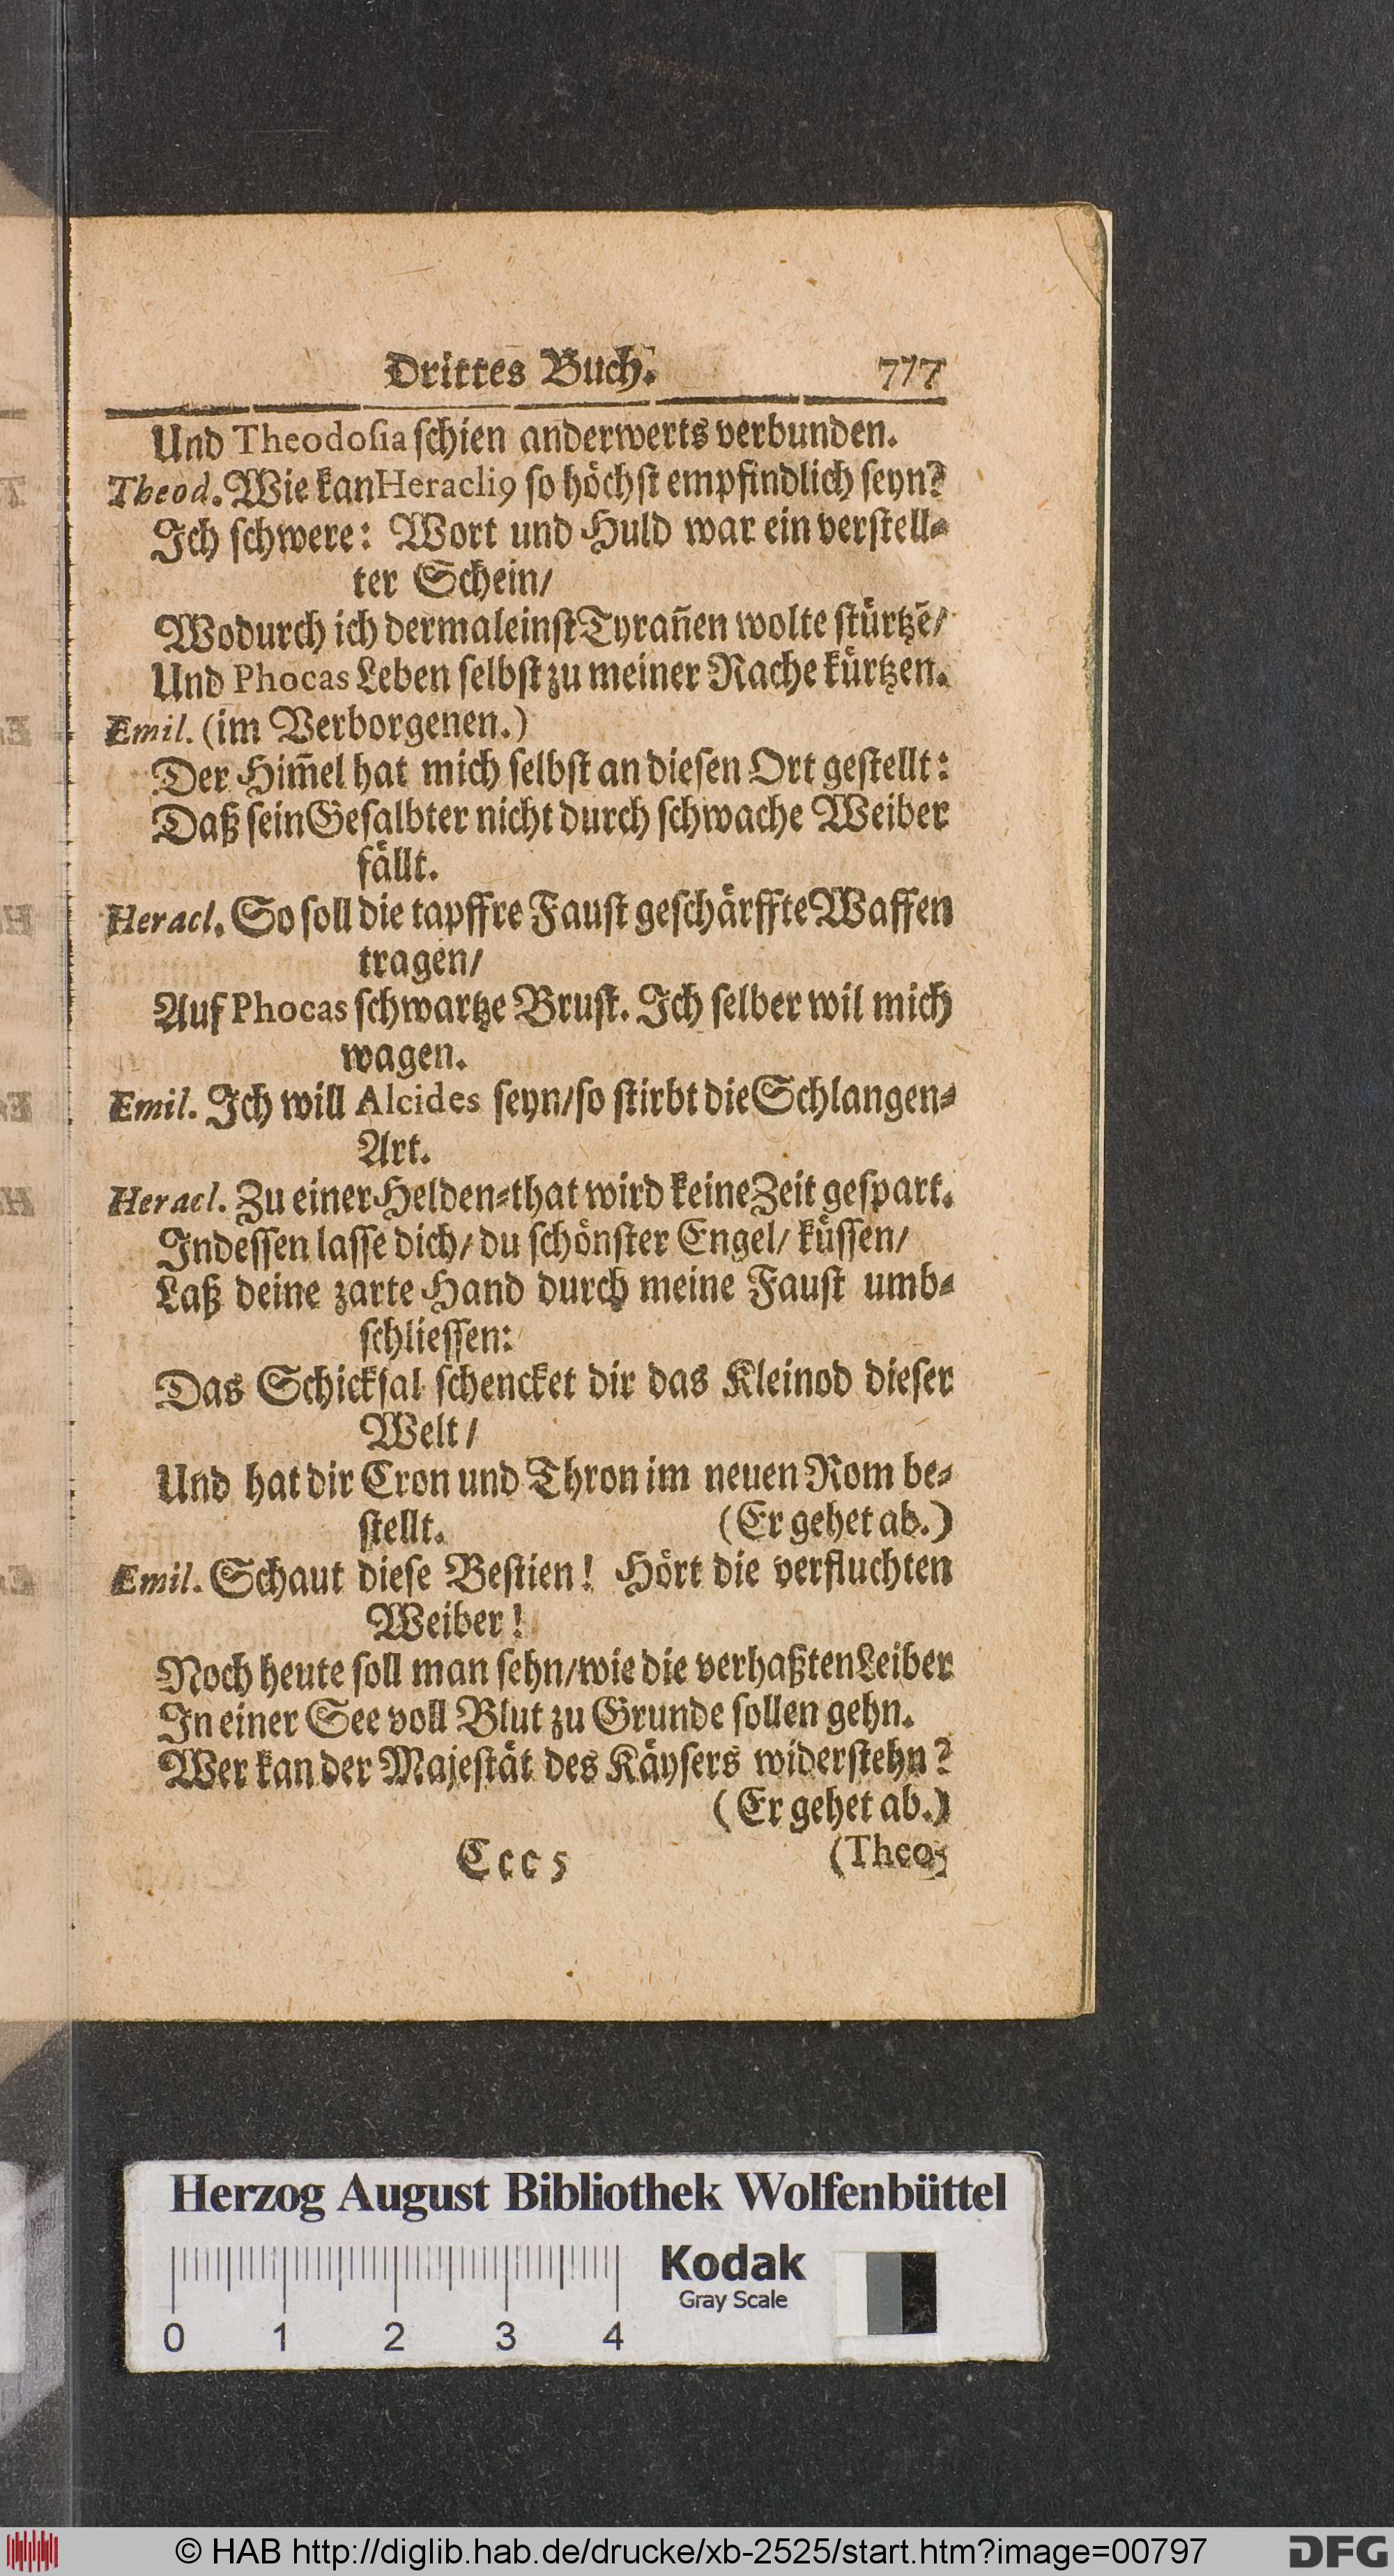 Drittes Buch. 777
Und Theodosia schien anderwerts verbunden.
Theod. Wie kan Heracliꝰ so höchst empfindlich seyn?
Ich schwere: Wort und Huld war ein verstell-
ter Schein/
Wodurch ich dermaleinst Tyrañen wolte stürtzẽ/
Und Phocas Leben selbst zu meiner Rache kürtzen.
Emil. (im Verborgenen.)
Der Him̃el hat mich selbst an diesen Ort gestellt:
Daß sein Gesalbter nicht durch schwache Weiber
fällt.
Heracl. So soll die tapffre Faust geschärffte Waffen
tragen/
Auf Phocas schwartze Brust. Ich selber wil mich
wagen.
Emil. Ich will Alcides seyn/so stirbt die Schlangen-
Art.
Heracl. Zu einer Helden-that wird keine Zeit gespart.
Indessen lasse dich/ du schönster Engel/ küssen/
Laß deine zarte Hand durch meine Faust umb-
schliessen:
Das Schicksal schencket dir das Kleinod dieser
Welt/
Und hat dir Cron und Thron im neuen Rom be-
stellt. (Er gehet ab.)
Emil. Schaut diese Bestien! Hört die verfluchten
Weiber!
Noch heute soll man sehn/wie die verhaßten Leiber
In einer See voll Blut zu Grunde sollen gehn.
Wer kan der Majestät des Käysers widerstehn?
(Er gehet ab.)
Ccc 5 (Theo-
Herzog August Bibliothek Wolfenbüttel
Kodak
Gray Scale
0 1 2 3 4
© HAB http://diglib.hab.de/drucke/xb-2525/start.htm?image=00797 DFG